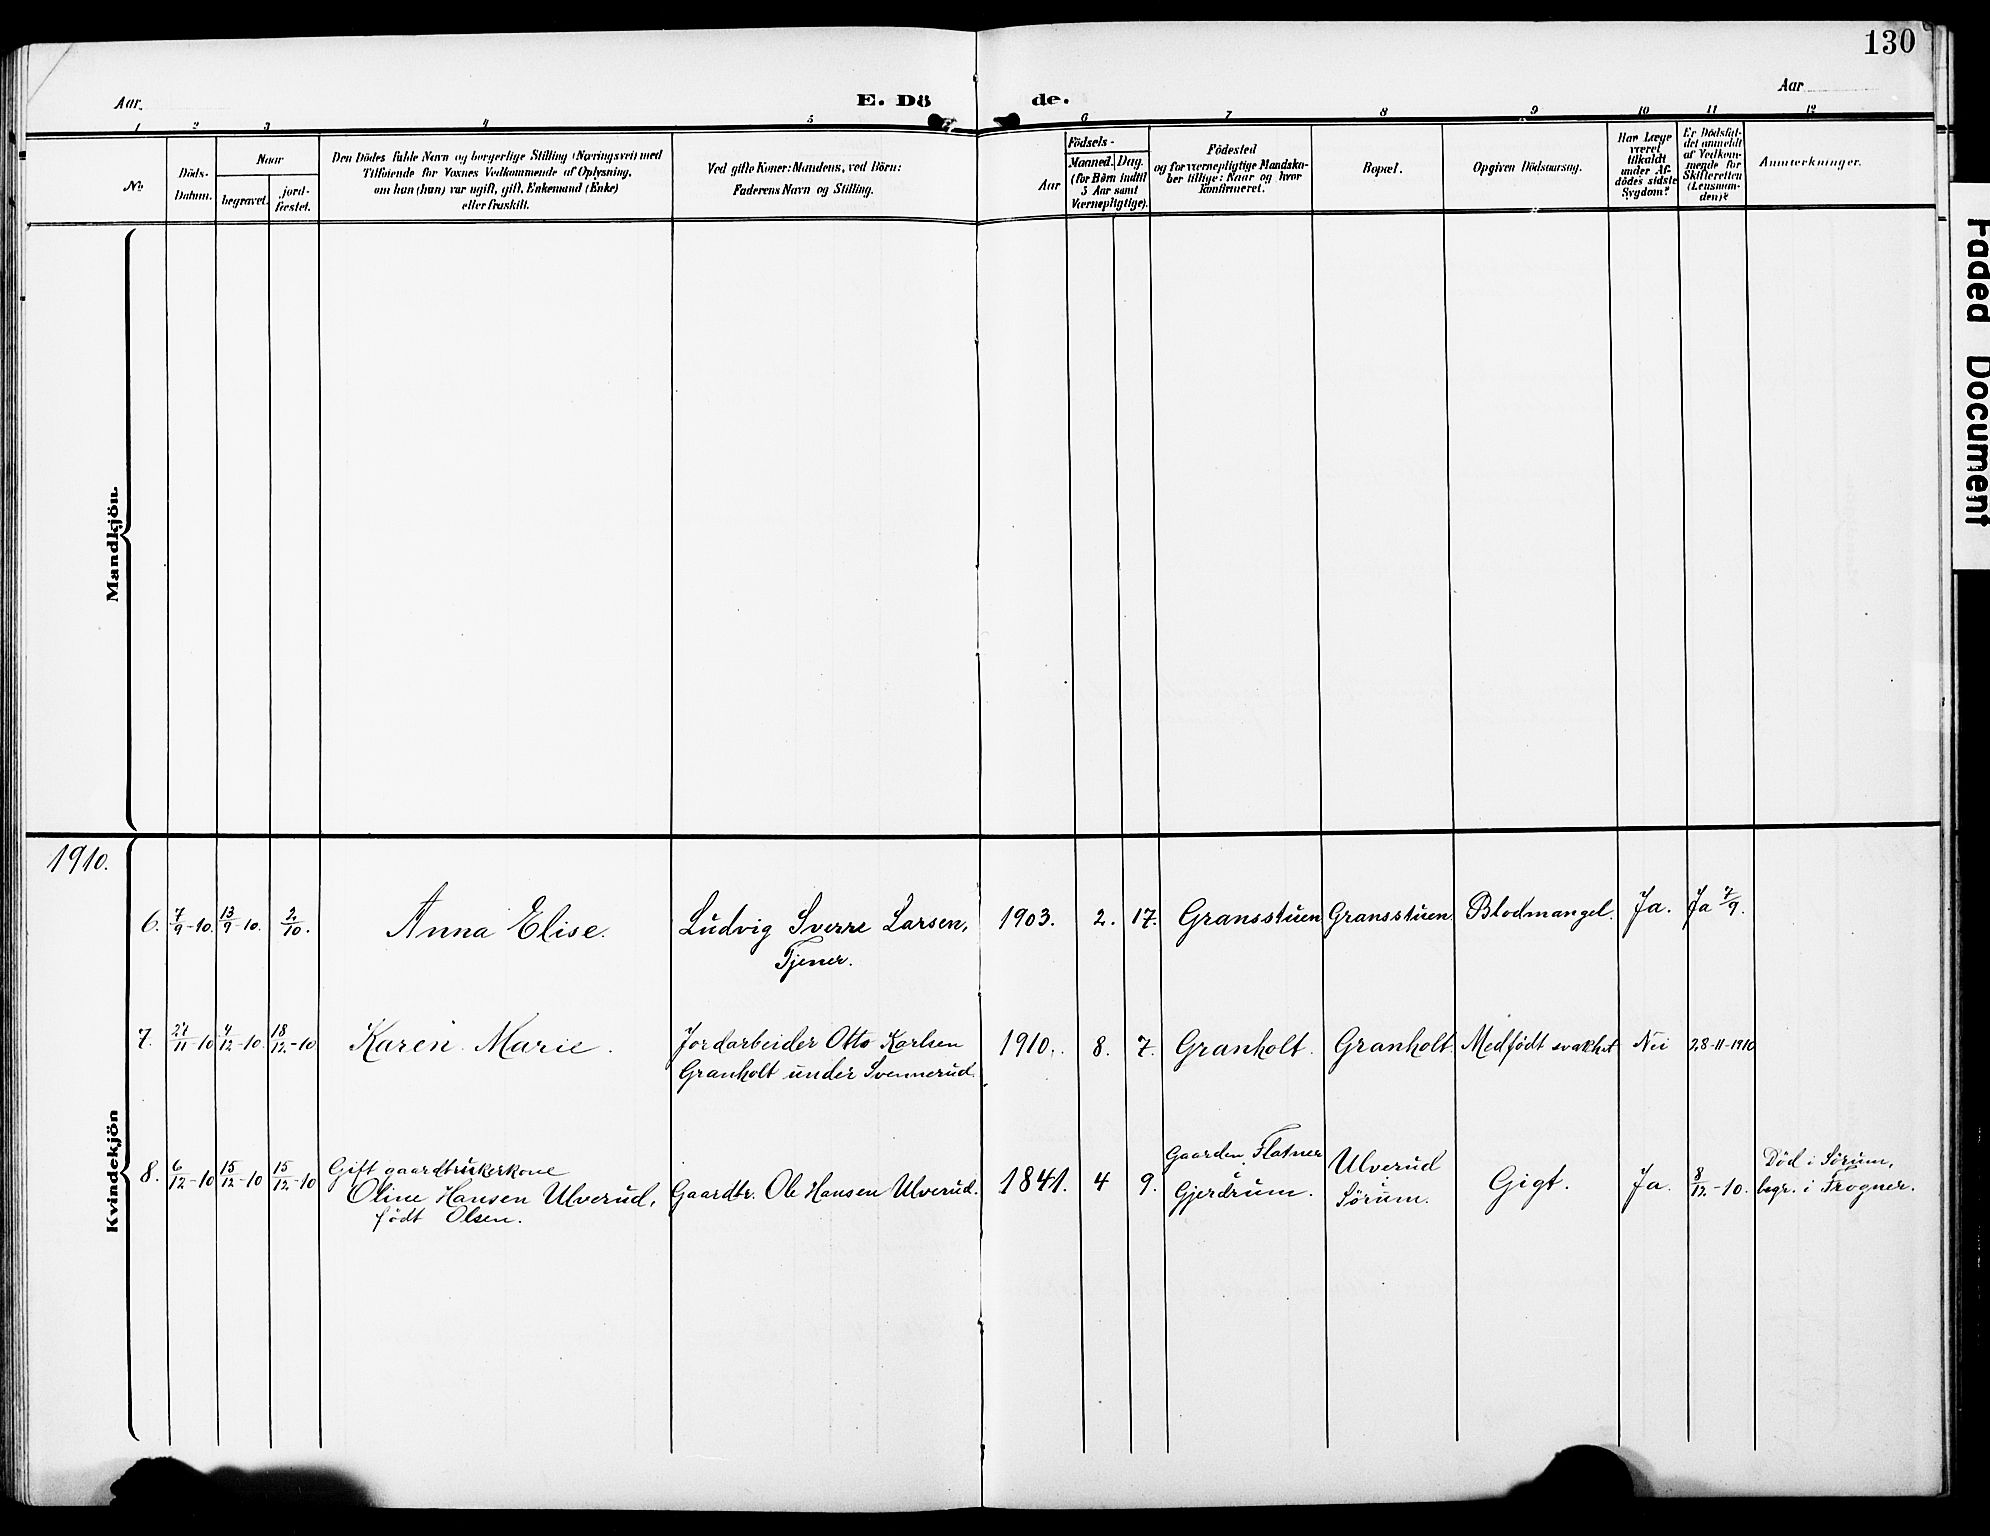 130
Aar
E. Dö
de.
Aar
1 2 3 4 5 6 7 8 9 10 11 12
No
Döds-
Datum.
Naar
begravet.
jord-
fæstet.
Den Dödes fulde Navn og borgerlige Stilling (Næringsvei) med
Tilföiende for Voxnes Vedkommende af Oplysning,
om han (hun) var ugift, gift, Enkemand (Enke)
eller fraskilt.
Ved gifte Koner: Mandens, ved Börn:
Faderens Navn og Stilling.
Födsels-
Aar
Maaned. Dag.
(for Börn indtil
5 Aar samt
Værnepligtige).
Födested
og for værnepligtige Mandska-
ber tillige: Naar og hvor
konfirmeret.
Bopæl.
Opgiven Dödsaarsag.
Har Læge
været
tilkaldt
under Af-
dödes sidste
Sygdom?
Er Dödsfal-
det anmeldt
af Vedkom-
mende for
Skifteretten
(Lensman-
den)?
Anmærkninger.
Faded Document
Mandkjön.
1910.
Kvindekjön
6. 7/9-10. 13/9-10. 2/10. Anna Elise. Ludvig Sverre Larsen, 1903. 2. 17. Gransstuen Gransstuen Blodmangel. Ja. Ja 7/9.
Tjener.
7. 27/11-10 4/12-10. 18/12-10 Karen Marie. Jordarbeider Otto Karlsen 1910. 8. 7. Granholt. Granholt. Medfödt svakhet Nei 28-11-1910
Granholt under Svennerud.
8. 6/12-10 15/12-10 15/12-10 Gift gaardbrukerkone
Oline Hansen Ulverud,
født Olsen.
Gaardbr. Ole Hansen Ulverud. 1841. 4 9.
Gaarden Flatner
Gjerdrum.
Ulverud
Sørum.
Gigt. Ja. 8/12-10.
Død i Sørum,
begr. i Frogner.